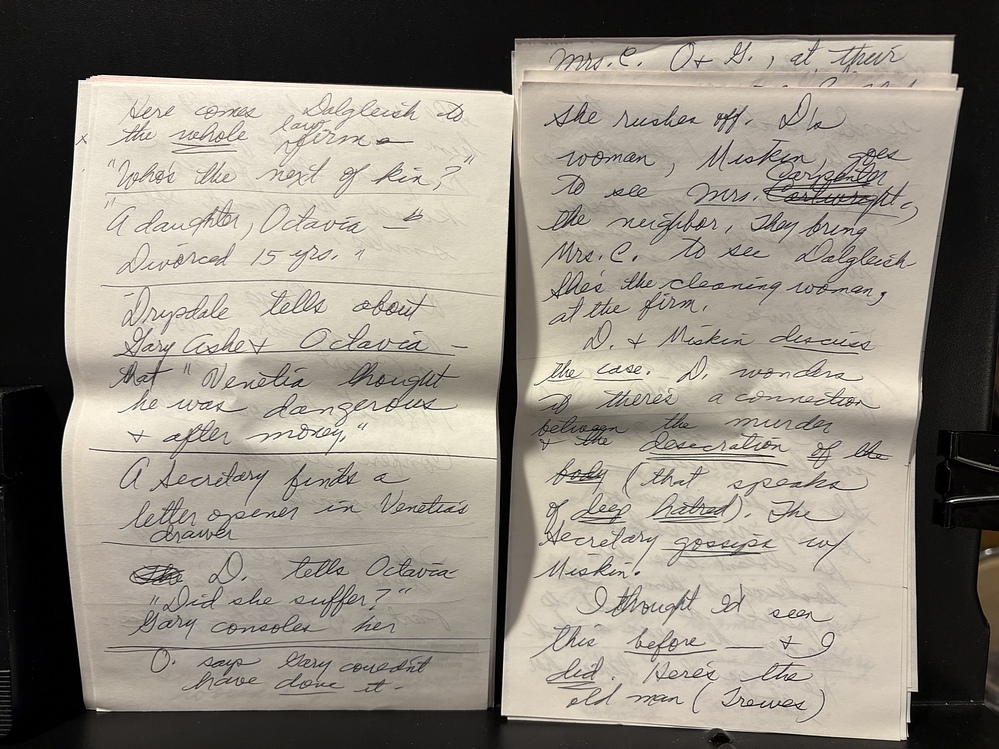 Here comes Dalgleish to
the whole law firm -
"Who's the next of kin?"
"A daughter, Octavia -
Divorced 15 yrs."
Drysdale tells about
Gary Ashe & Octavia -
that "Venetia thought
he was dangerous
& after money."
A secretary finds a
letter opener in Venetia's
drawer
D. tells Octavia
"Did she suffer?"
Gary consoles her
O. says Gary couldn't
have done it -
Mrs. C. O & G., at their
she rushes off. D's
woman, Miskin, goes
to see Mrs. Carpenter,
the neighbor. They bring
Mrs. C. to see Dalgleish
She's the cleaning woman,
at the firm.
D. & Miskin discuss
the case. D. wonders
if there's a connection
between the murder
& the desecration of the
body (that speaks
of deep hatred). The
secretary gossips w/
Miskin.
I thought I'd seen
this before — & I
did. Here's the
old man (Trewes)